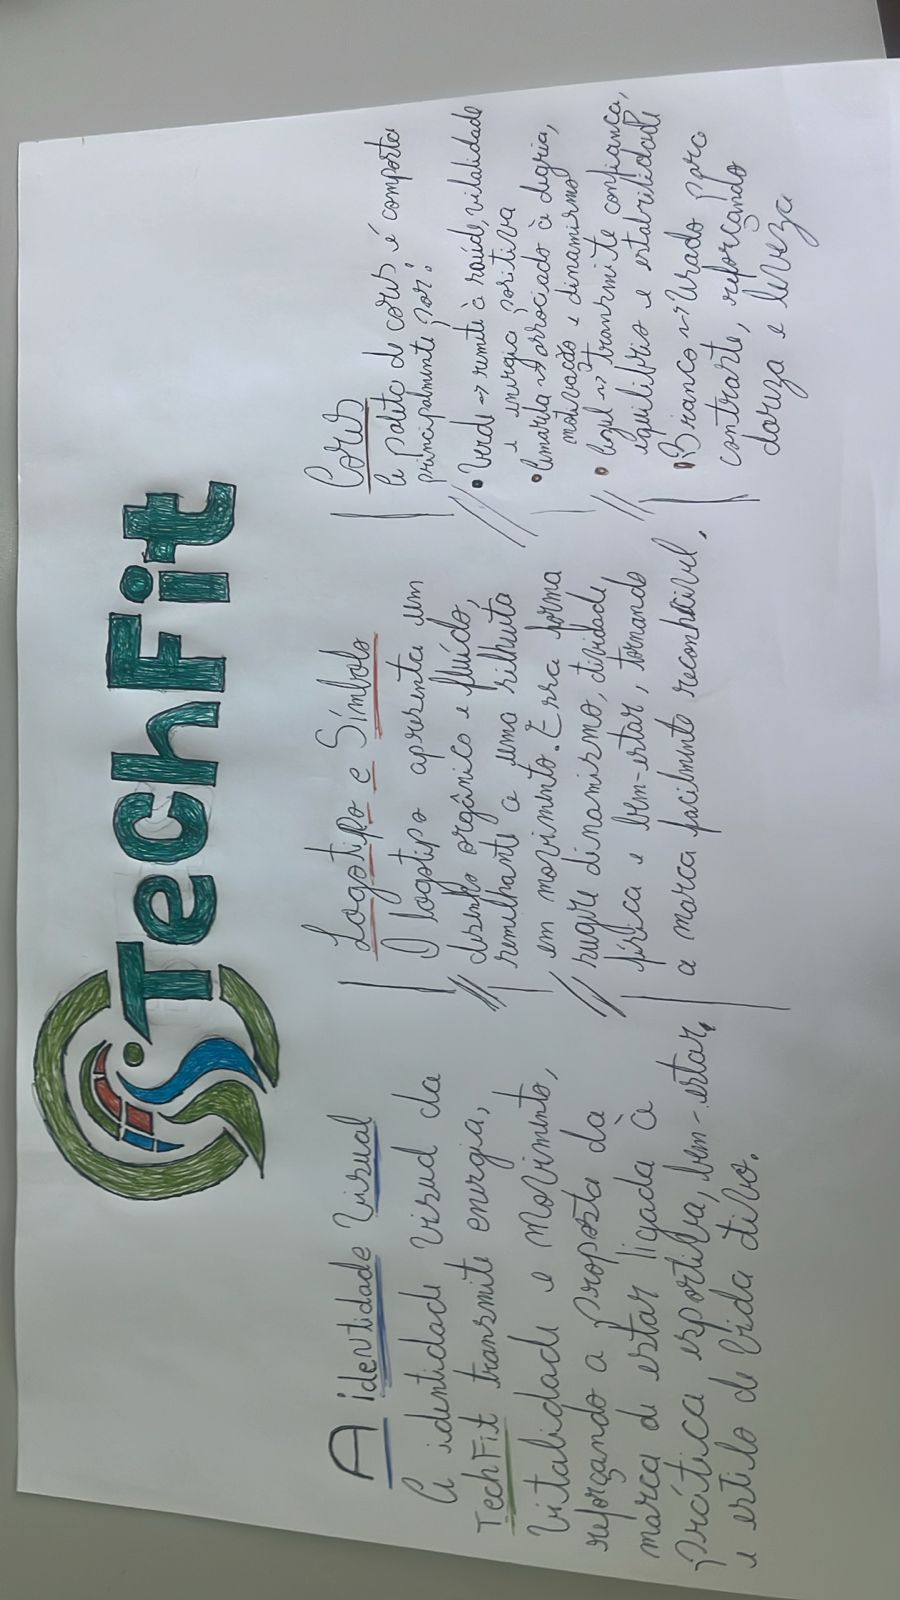 TechFit
A identidade Visual
A identidade visual da
TechFit transmite energia,
vitalidade e movimento,
reforçando a proposta da
marca de estar ligada à
prática esportiva, bem-estar,
e estilo de vida ativo.
Logotipo e Símbolo
O logotipo apresenta um
desenho orgânico e fluído,
semelhante a uma silhueta
em movimento. Essa forma
sugere dinamismo, atividade
física e bem-estar, tornando
a marca facilmente reconhecível.
Cores
A paleta de cores é composta
principalmente por:
• Verde → remete à saúde, vitalidade
e energia positiva
• Amarelo → associado à alegria,
motivação e dinamismo
• Azul → transmite confiança,
equilíbrio e estabilidade
• Branco → Usado para
contraste, reforçando
clareza e leveza